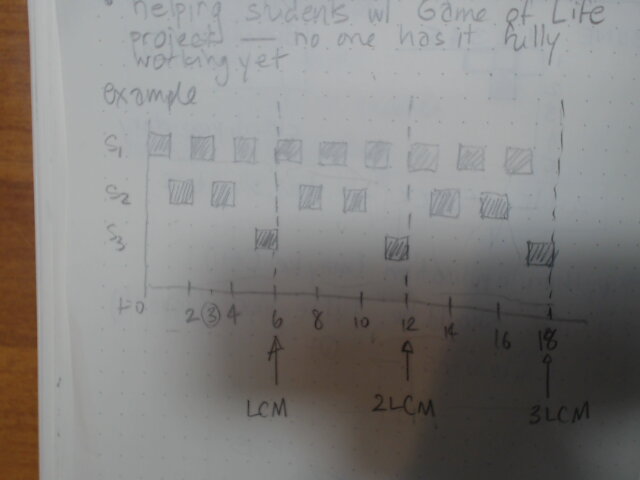 helping students w/ Game of Life
project — no one has it fully
working yet
example
S1
S2
S3
t=0 2 3 4 6 8 10 12 14 16 18
LCM 2LCM 3LCM